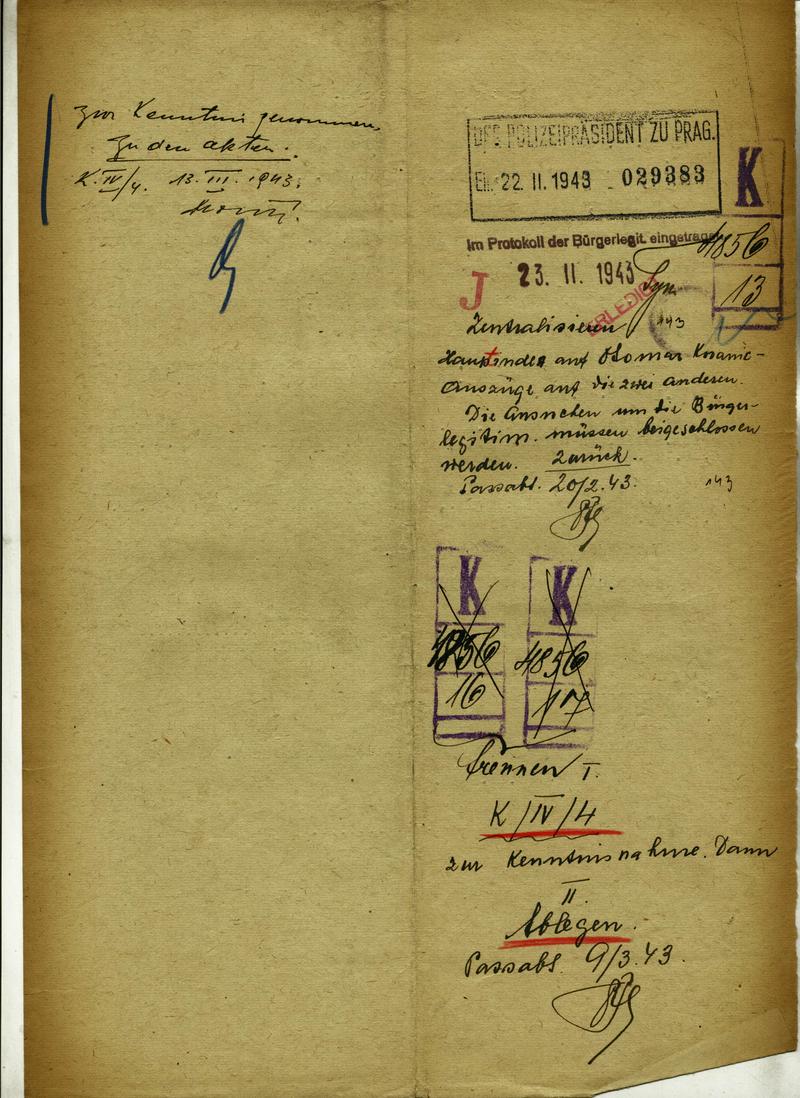 Zur Kenntnis genommen
Zu den Akten.
K. IV/4. 13. III. 1943.
DER POLIZEIPRÄSIDENT ZU PRAG.
Ei. 22. II. 1943 029383
K
4856
13
Im Protokoll der Bürgerlegit. eingetragen
J
23. II. 1943
ERLEDIGT
Zentralisieren
143
Hauptindex auf Otomar
Auszüge auf die zwei anderen.
Die Ansuchen um die Bürger-
legitim. müssen beigeschlossen
werden. Zurück.
Passabt. 20/2.43.
143
K
4856
16
K
4856
17
Trennen I.
K/IV/4
zur Kenntnisnahme. Dann
II.
Ablegen.
Passabt. 9/3.43.